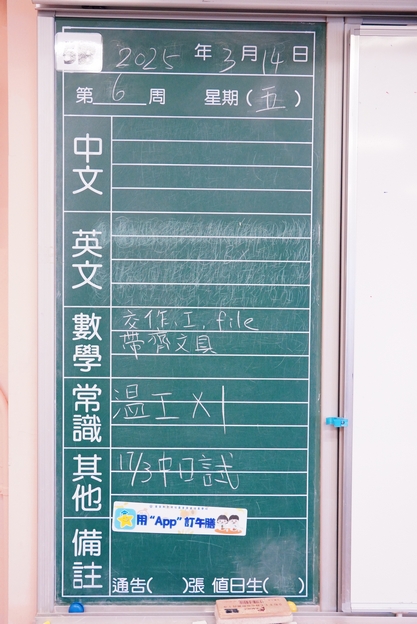 2025 年 3 月 14 日
第 6 周 星期 ( 五 )
中文
英文
數學
交作,工, file
帶齊文具
常識
温工 X 1
其他
17/3 中口試
備註
用 "App" 訂午膳
通告( )張 值日生( )